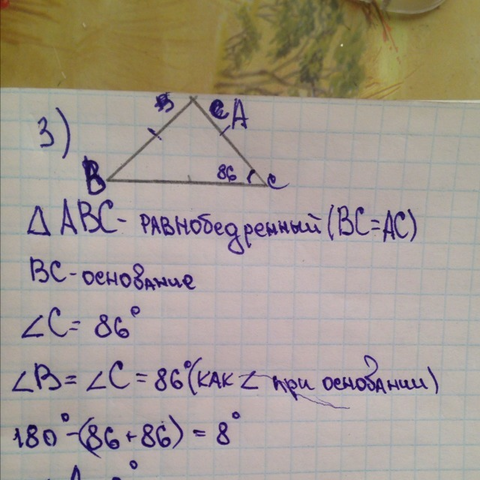 3)
A
B
86
C
△ ABC - равнобедренный (BC=AC)
BC-основание
∠C = 86°
∠B = ∠C = 86° (как ∠ при основании)
180° - (86 + 86) = 8°